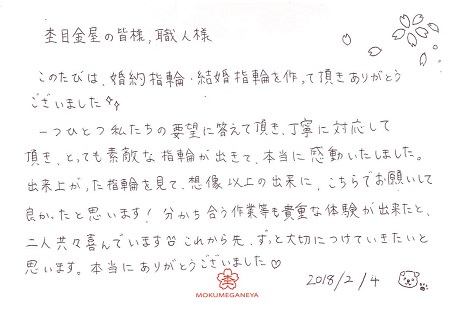 杢目金屋の皆様,職人様
このたびは、婚約指輪・結婚指輪を作って頂きありがとう
ございました
一つひとつ私たちの要望に答えて頂き、丁寧に対応して
頂き、とっても素敵な指輪が出きて、本当に感動いたしました。
出来上がった指輪を見て、想像以上の出来に、こちらでお願いして
良かったと思います！分かち合う作業等も貴重な体験が出来たと、
二人共々喜んでいます♡これから先、ずっと大切につけていきたいと
思います。本当にありがとうございました♡
2018/2/4
MOKUMEGANEYA